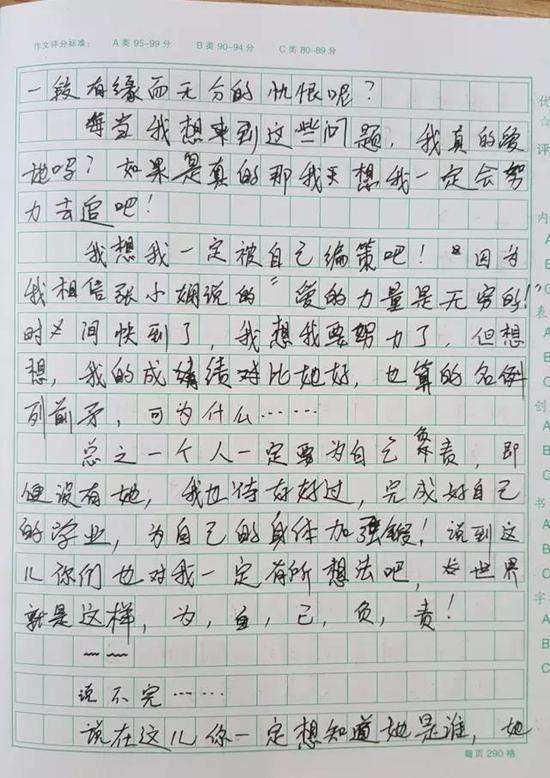 作文评分标准： A类 95-99分 B类 90-94分 C类 80-89分
一段有缘而无分的仇恨呢？
每当我想来到这些问题，我真的爱
她吗？如果是真的那我天想我一定会努
力去追吧！
我想我一定被自己编策吧！"因为
我相信张小娴说的"爱的力量是无穷的！"
时间快到了，我想我要努力了，但想
想，我的成绩对比她好，也算的名例
列前矛，可为什么……
总之一个人一定要为自己负责，即
使没有她，我也待好好过，完成好自己
的学业，为自己的身体加强锻！说到这
儿你们也对我一定有所想法吧，世界
就是这样，为，自，己，负，责！
~~
说不完……
说在这儿你一定想知道她是谁，她
每页290格
优
☆
评
内
A
B
C
表
A
B
C
创
A
B
C
书
A
B
C
字
A
B
C